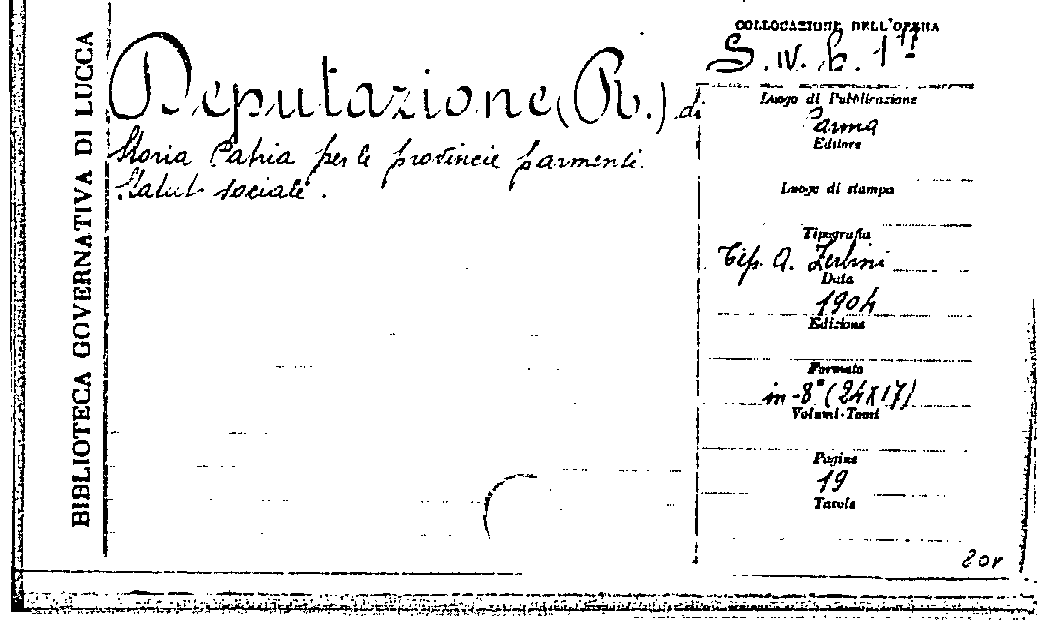 BIBLIOTECA GOVERNATIVA DI LUCCA
Deputazione (R.) di
Storia Patria per le provincie parmensi.
Statuto sociale.
COLLOCAZIONE DELL'OPERA
S. IV. b. 1
Luogo di Pubblicazione
Parma
Editore
Luogo di stampa
Tipografia
Tip. A. Zerbini
Data
1904
Edizione
Formato
in-8° (24x17)
Volumi-Tomi
Pagine
19
Tavole